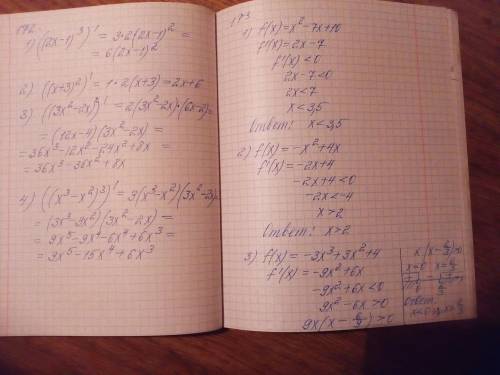 172.
1) ((2x-1)³)' = 3·2(2x-1)² =
= 6(2x-1)²
2) ((x+3)²)' = 1·2(x+3) = 2x+6
3) ((3x²-2x)²)' = 2(3x²-2x)·(6x-2) =
= (12x-4)(3x²-2x) =
= 36x³-12x²-24x²+8x =
= 36x³-36x²+8x
4) ((x³-x²)³)' = 3(x³-x²)(3x²-2x) =
= (3x³-3x²)(3x²-2x) =
= 9x⁵-9x⁴-6x⁴+6x³ =
= 9x⁵-15x⁴+6x³
173
1) f(x) = x²-7x+10
f'(x) = 2x-7
f'(x) < 0
2x-7<0
2x<7
x<3,5
Ответ: x<3,5
2) f(x) = -x²+4x
f'(x) = -2x+4
-2x+4<0
-2x<-4
x>2
Ответ: x>2
3) f(x) = -3x³+3x²+4
f'(x) = -9x²+6x
-9x²+6x<0
9x²-6x>0
9x(x-6/9)>0
x(x-6/9)>0
x=0 x=6/9
0 6/9
Ответ:
x<0 x>6/9